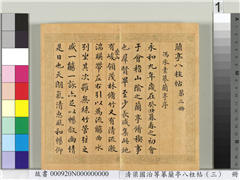 1
蘭亭八柱帖 第三冊
馮承素摹蘭亭序
永和九年歲在癸丑暮春之初會
于會稽山陰之蘭亭脩稧事
也羣賢畢至少長咸集此地
有峻領茂林脩竹又有清流激
湍暎帶左右引以為流觴曲水
列坐其次雖無絲竹管弦之
盛一觴一詠亦足以暢叙幽情
是日也天朗氣清惠風和暢仰
故書 000920N000000000 清梁國治等摹蘭亭八柱帖(三) 冊